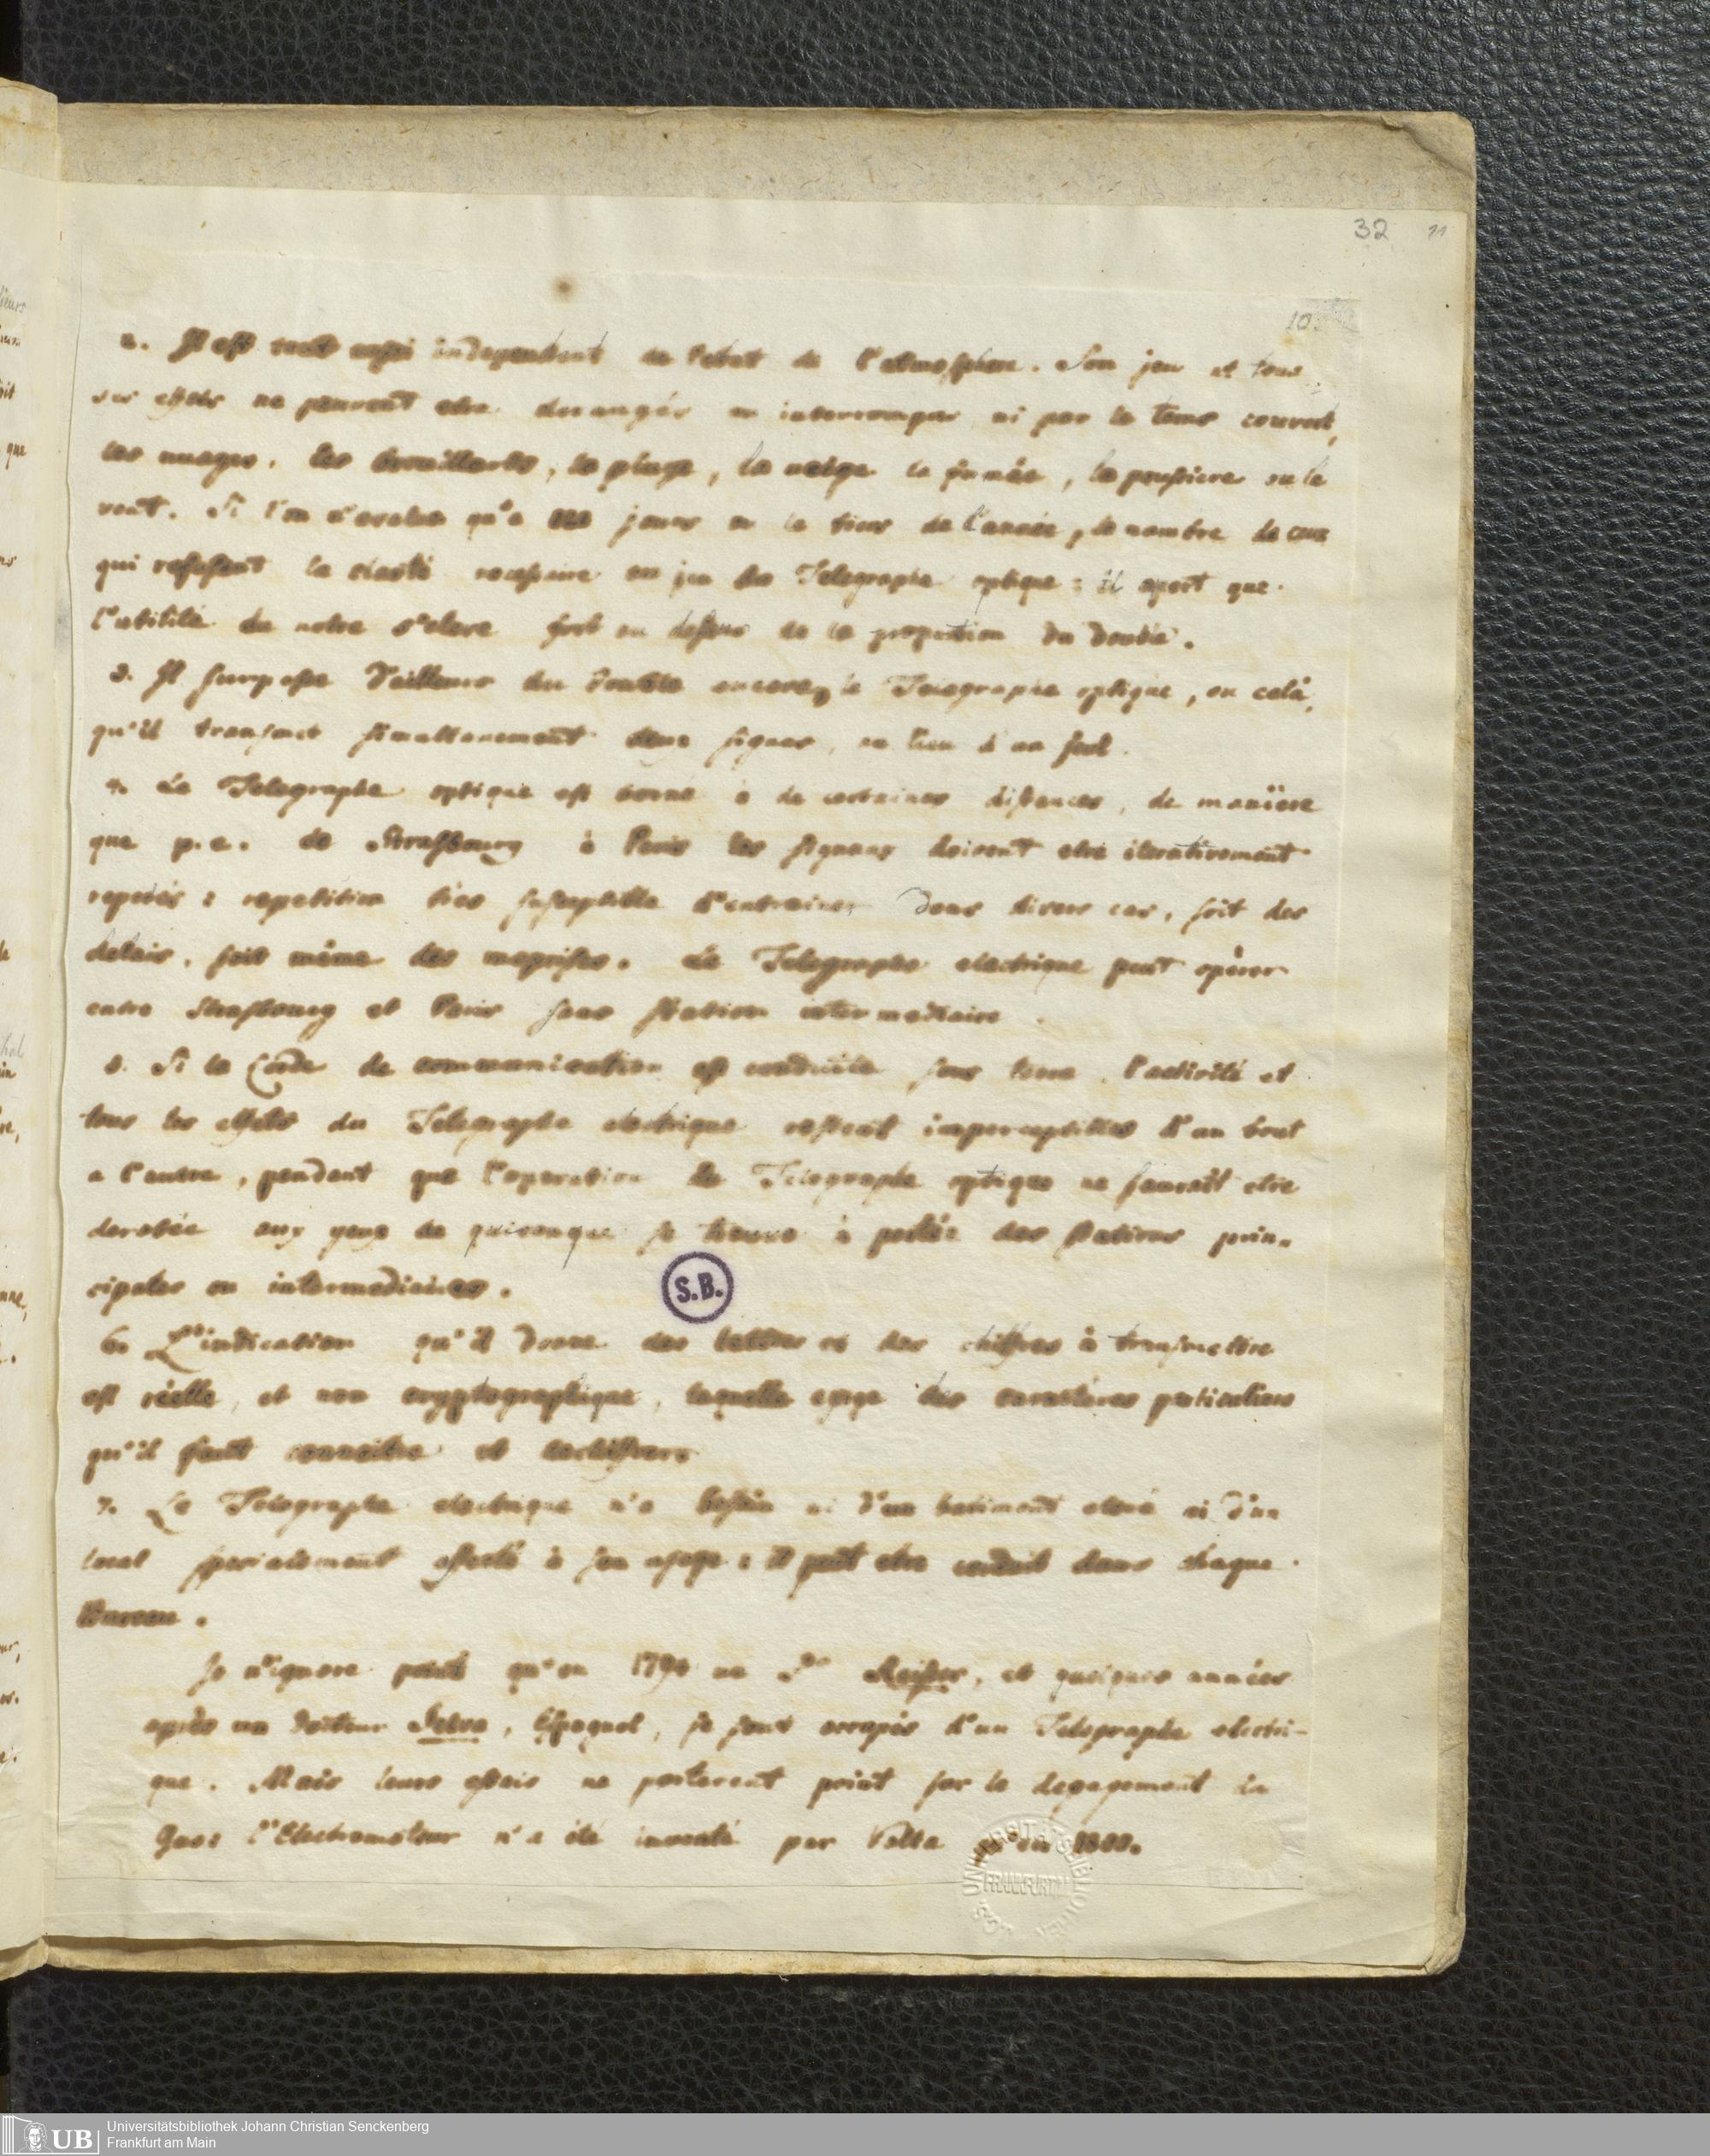 32 11
10
2. Il est tout aussi independent de l'etat de l'atmosphere. Son jeu et tous
ses effets ne peuvent etre derangés ou interrompus, ni par le tems couvert,
les nuages, les brouillards, la pluye, la neige la fumée, la poussiere ou le
vent. Si l'on n'evalue qu'a jours ou le tiers de l'année, le nombre de ceux
qui refusent la clarté necessaire au jeu du Telegraphe optique : il apert que
l'utilité du notre s'eleve fort au dessus de la proportion du double.
3. Il surpasse d'ailleurs du double encore, le Telegraphe optique, en celà,
qu'il transmet simultanement deux signes, au lieu d'un seul.
4. Le Telegraphe optique est borné à de certaines distances, de maniere
que p. e. de Strasbourg à Paris les signaux doivent etre iterativement
repetés : repetition très susceptible d'entrainer dans divers cas, soit des
delais, soit même des meprises. Le Telegraphe electrique peut opèrer
entre Strasbourg et Paris sans station intermediaire.
5. Si la Corde de communication est conduite sous terre, l'activité et
tous les effets du Telegraphe electrique restent imperceptibles d'un bout
a l'autre, pendent que l'operation du Telegraphe optique ne sauroit etre
derobée aux yeux de quiconque se trouve à portée des stations prin-
cipales ou intermediaires.
S.B.
6. L'indication qu'il donne des lettres et des chiffres à transmettre
est réelle, et non cryptographique, laquelle exige des caractères particuliers
qu'il faut connoitre et dechiffrer.
7. Le Telegraphe electrique n'a besoin ni d'un batiment elevé ni d'un
local specialement affecté à son usage : il peut etre conduit dans chaque
Bureau.
Je n'ignore point qu'en 1794 un Sr Reisser, et quelques années
après un docteur Salva, Espagnol, se sont occupés d'un Telegraphe electri-
que. Mais leurs essais ne porterent point sur le degagement du
Gaz : l'Electromoteur n'a été inventé par Volta qu'en 1800.
UNIVERSITÄTSBIBLIOTHEK
FRANKFURT
UB
Universitätsbibliothek Johann Christian Senckenberg
Frankfurt am Main